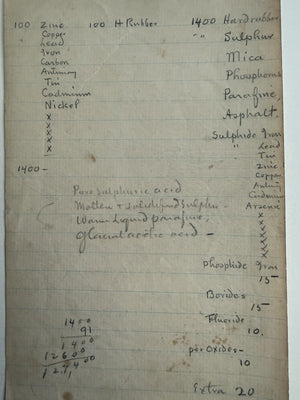 100 Zinc 100 H Rubber 1400 Hard rubber
Copper " Sulphur
Lead
Iron Mica
Carbon
Antimony Phosphorus
Tin
Cadmium Parafine
Nickel
x Asphalt.
x
x Sulphide Iron
x " Lead
x Tin
1400- Zinc
Copper
Pure sulphuric acid Antimy
Molten & solidified sulphur - Cadmium
Warm Liquid parafine, Arsenic
Glacial acetic acid - x
x
x
x
x
Phosphide Iron
15-
Borides
15-
1400 Fluoride -
91 10.
1400
12600 per Oxides-
127400 10
Extra 20